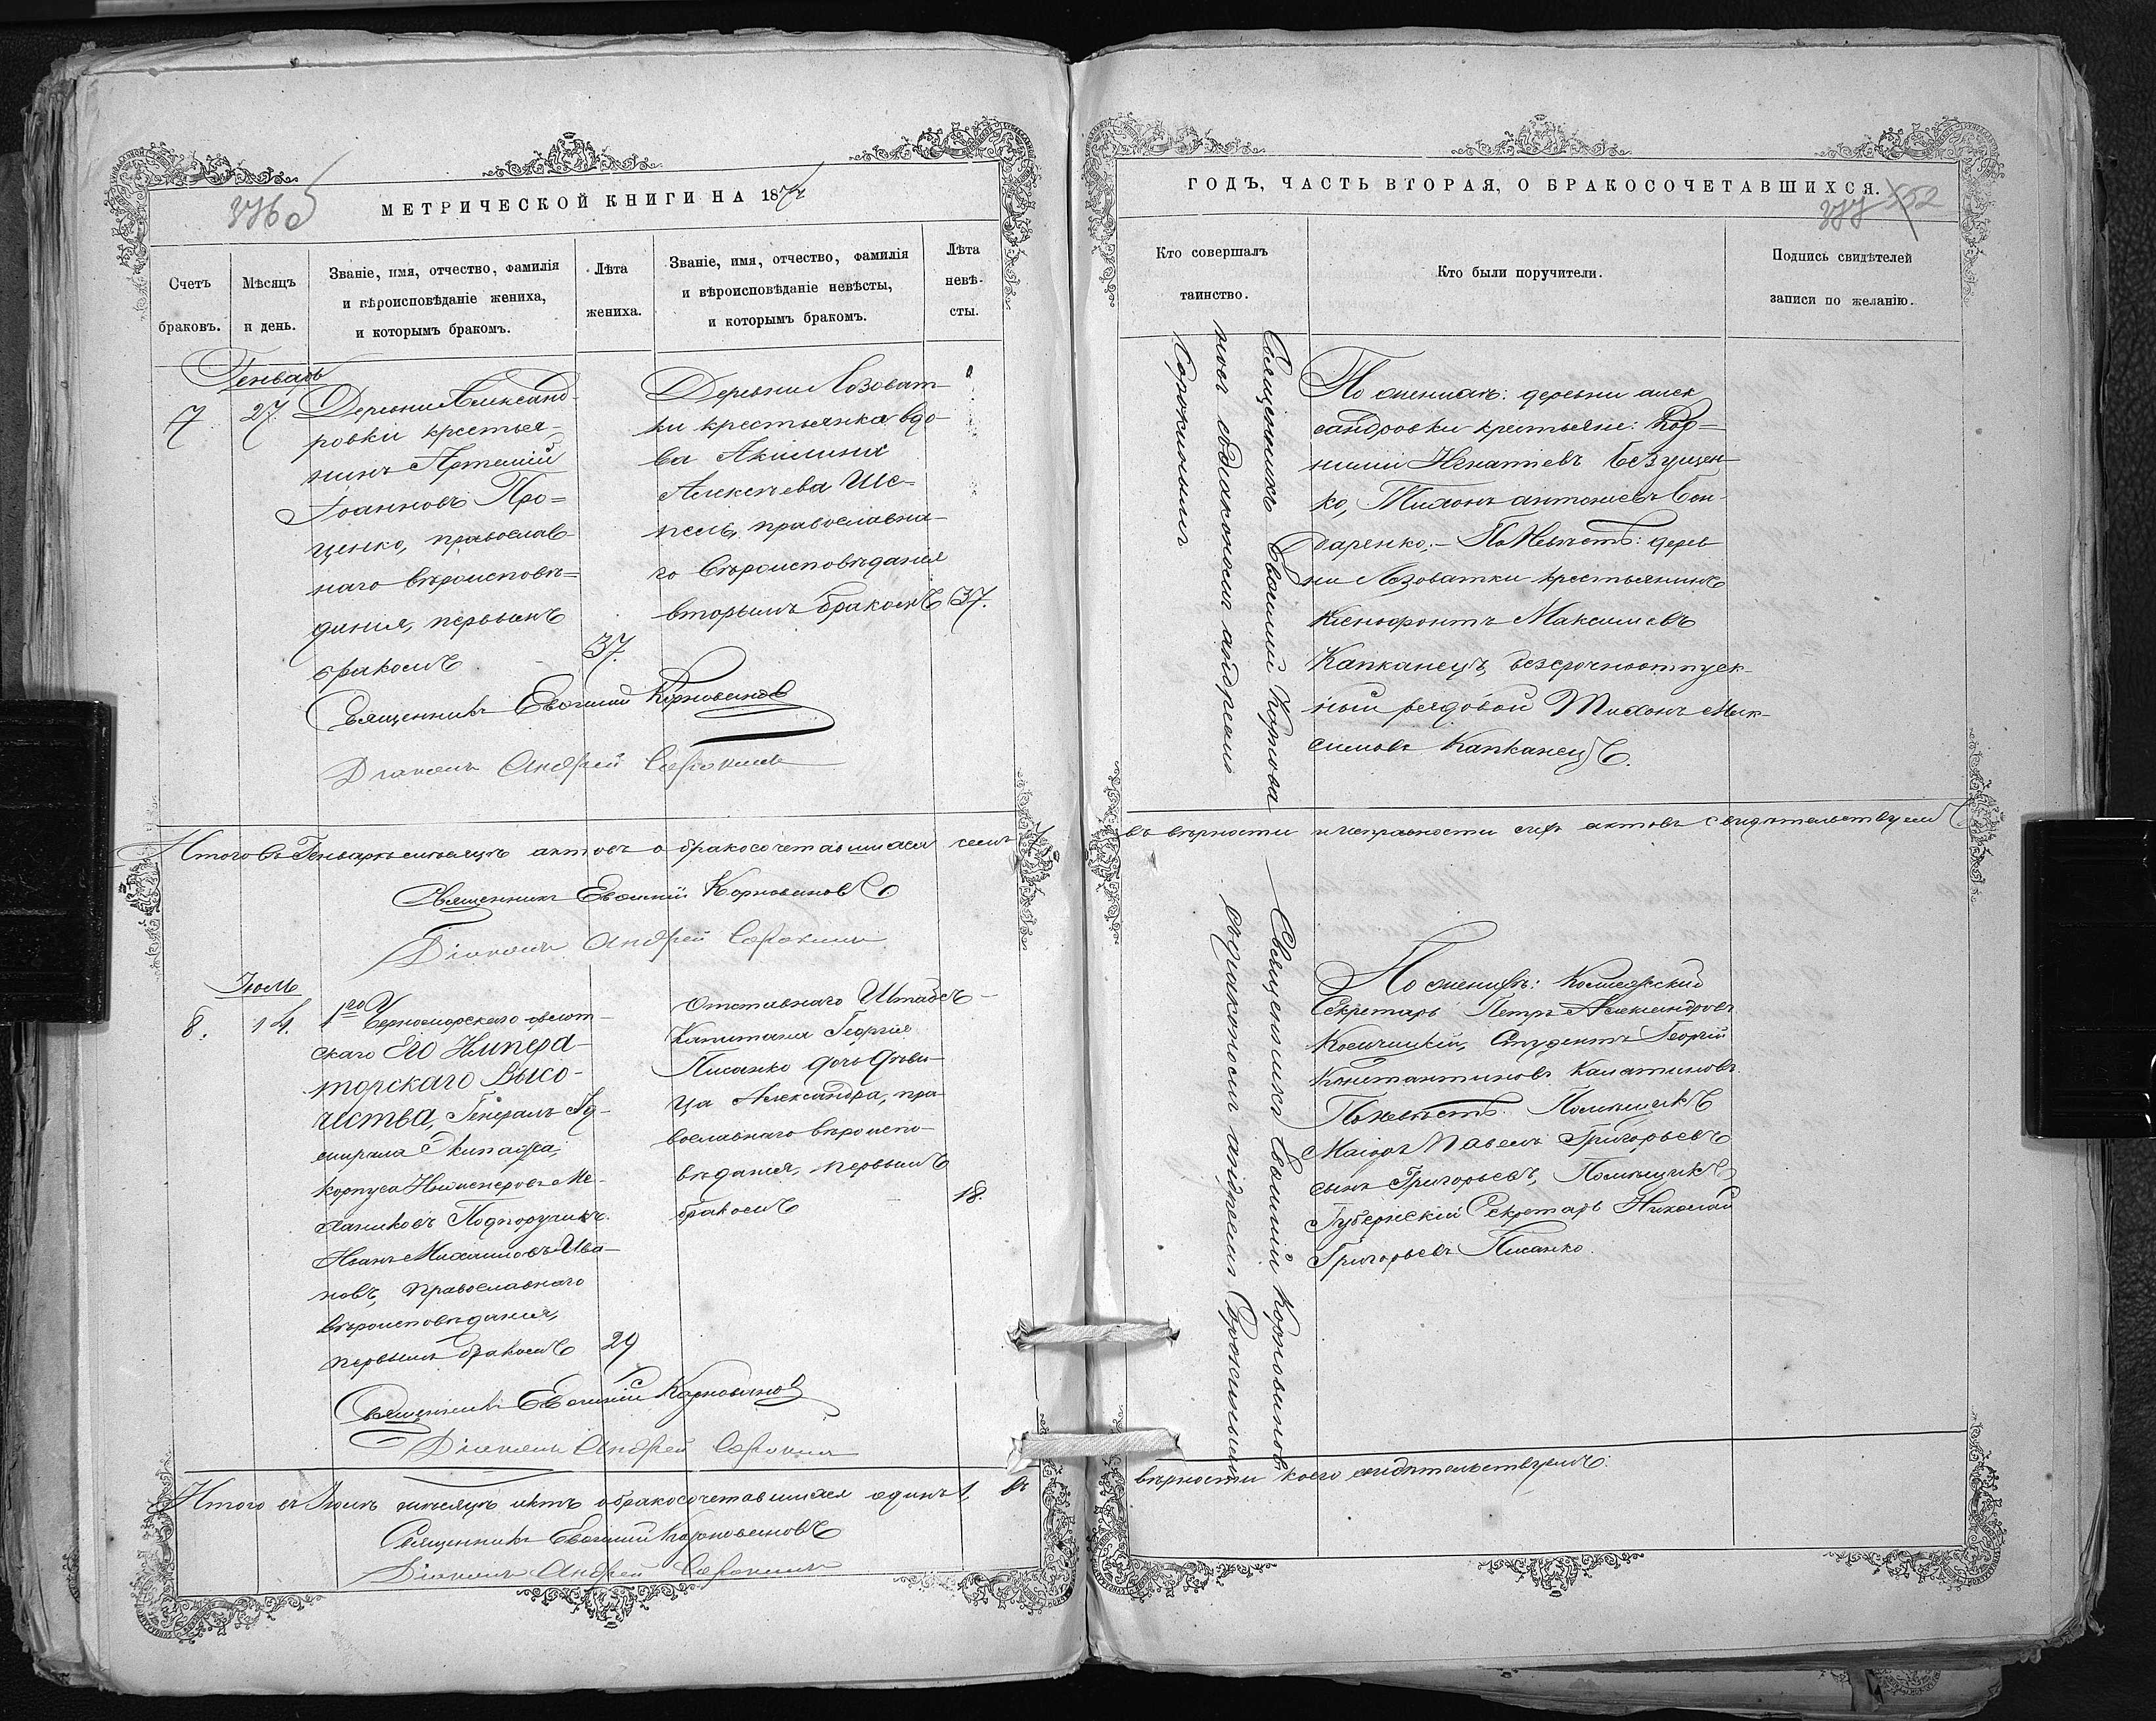 МЕТРИЧЕСКОЙ КНИГИ НА 187
Счетъ браковъ.
Мѣсяцъ и день.
Званіе, имя, отчество, фамилія
и вѣроисповѣданіе жениха,
и которымъ бракомъ.
Лѣта жениха.
Званіе, имя, отчество, фамилія
и вѣроисповѣданіе невѣсты,
и которымъ бракомъ.
Лѣта невѣ-
сты.
Генварь
7 27
Деревни Александ-
ровки крестья-
нинъ Артемій
Іоанновъ Про=
ценко, православ-
наго вѣроисповѣ=
данія, первымъ
бракомъ
37.
Деревни Лозоват-
ки крестьянка вдо-
ва Акилина
Алексѣева Ше-
пель, православна-
го вѣроисповѣданія
вторымъ бракомъ 37.
Священникъ Евѳимій Корновановъ
Діаконъ Андрей Сорокинъ
Итого въ Генварѣ мѣсяцѣ актовъ о бракосочетавшихся семь
Священникъ Евѳимій Корновановъ
Діаконъ Андрей Сорокинъ
Іюль
8. 14.
1го Черноморскаго флот-
скаго Его Импера-
торскаго Высо-
чества, Генералъ Ад-
мирала Экипажа,
корпуса Инженеровъ Ме-
ханиковъ Подпоручикъ
Иванъ Михайловъ Ива-
новъ, православнаго
вѣроисповѣданія,
первымъ бракомъ 29
Отставнаго Штабсъ-
Капитана Георгія
Писанко дочь дѣви-
ца Александра, пра-
вославнаго вѣроиспо-
вѣданія, первымъ
бракомъ 18.
Священникъ Евѳимій Корновановъ
Діаконъ Андрей Сорокинъ
Итого въ Іюлѣ мѣсяцѣ актъ о бракосочетавшихся одинъ 1, въ
Священникъ Евѳимій Корновановъ
Діаконъ Андрей Сорокинъ
ГОДЪ, ЧАСТЬ ВТОРАЯ, О БРАКОСОЧЕТАВШИХСЯ.
Кто совершалъ
таинство.
Кто были поручители.
Подпись свидѣтелей
записи по желанію.
Священникъ Евѳимій Корнова
новъ съ діакономъ Андреемъ
Сорокинымъ
По женихѣ: деревни Алек
сандровки крестьяне: Кор=
нилій Игнатіевъ
ко, Тихонъ Антоніевъ Бон-
даренко; – По Невѣстѣ: дерев
ни Лозоватки крестьянинъ
Ксенофонтъ Максимовъ
Капканецъ, безсрочноотпуск-
ный рядовой Тихонъ Мак-
симовъ Капканецъ.
въ вѣрности и исправности сихъ актовъ свидѣтельствуемъ
Священникъ Евѳимій Корновановъ
съ діакономъ Андреемъ Сорокинымъ
По женихѣ: Коллежскій
Секретарь Петръ Александровъ
Студентъ Георгій
Константиновъ
По невѣстѣ: Помѣщикъ
Маіоръ Павелъ Григорьевъ
сынъ Григорьевъ, Помѣщикъ
Губернскій Секретарь Николай
Григорьевъ Писанко.
вѣрности коего свидѣтельствуемъ: